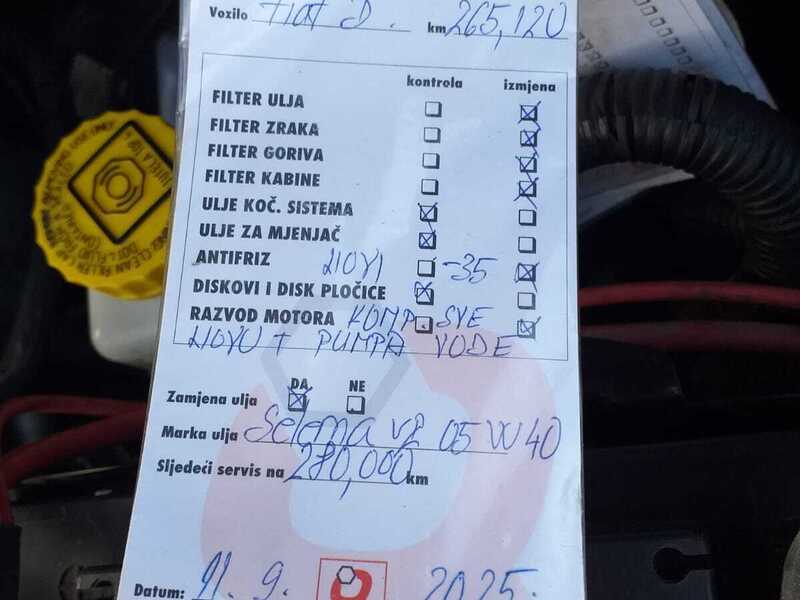 Vozilo Fiat D. km 265,120
kontrola izmjena
FILTER ULJA
FILTER ZRAKA
FILTER GORIVA
FILTER KABINE
ULJE KOČ. SISTEMA
ULJE ZA MJENJAČ
ANTIFRIZ NOVI -35
DISKOVI I DISK PLOČICE
RAZVOD MOTORA KOMP. SVE
NOVO + PUMPA VODE
DA NE
Zamjena ulja
Marka ulja Selenia 05 W 40
Sljedeći servis na 280,000 km
Datum: 11. 9. 2025.